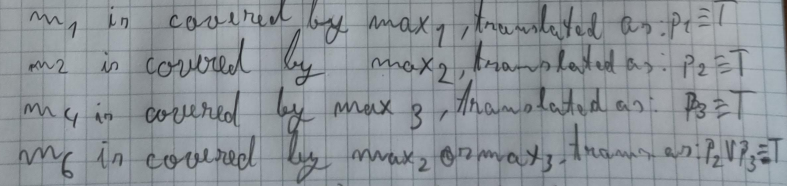 m1 is covered by max1, translated as: p1≡T
m2 is covered by max2, translated as: p2≡T
m4 is covered by max3, translated as: p3≡T
m6 is covered by max2 or max3. trans as: p2∨p3≡T